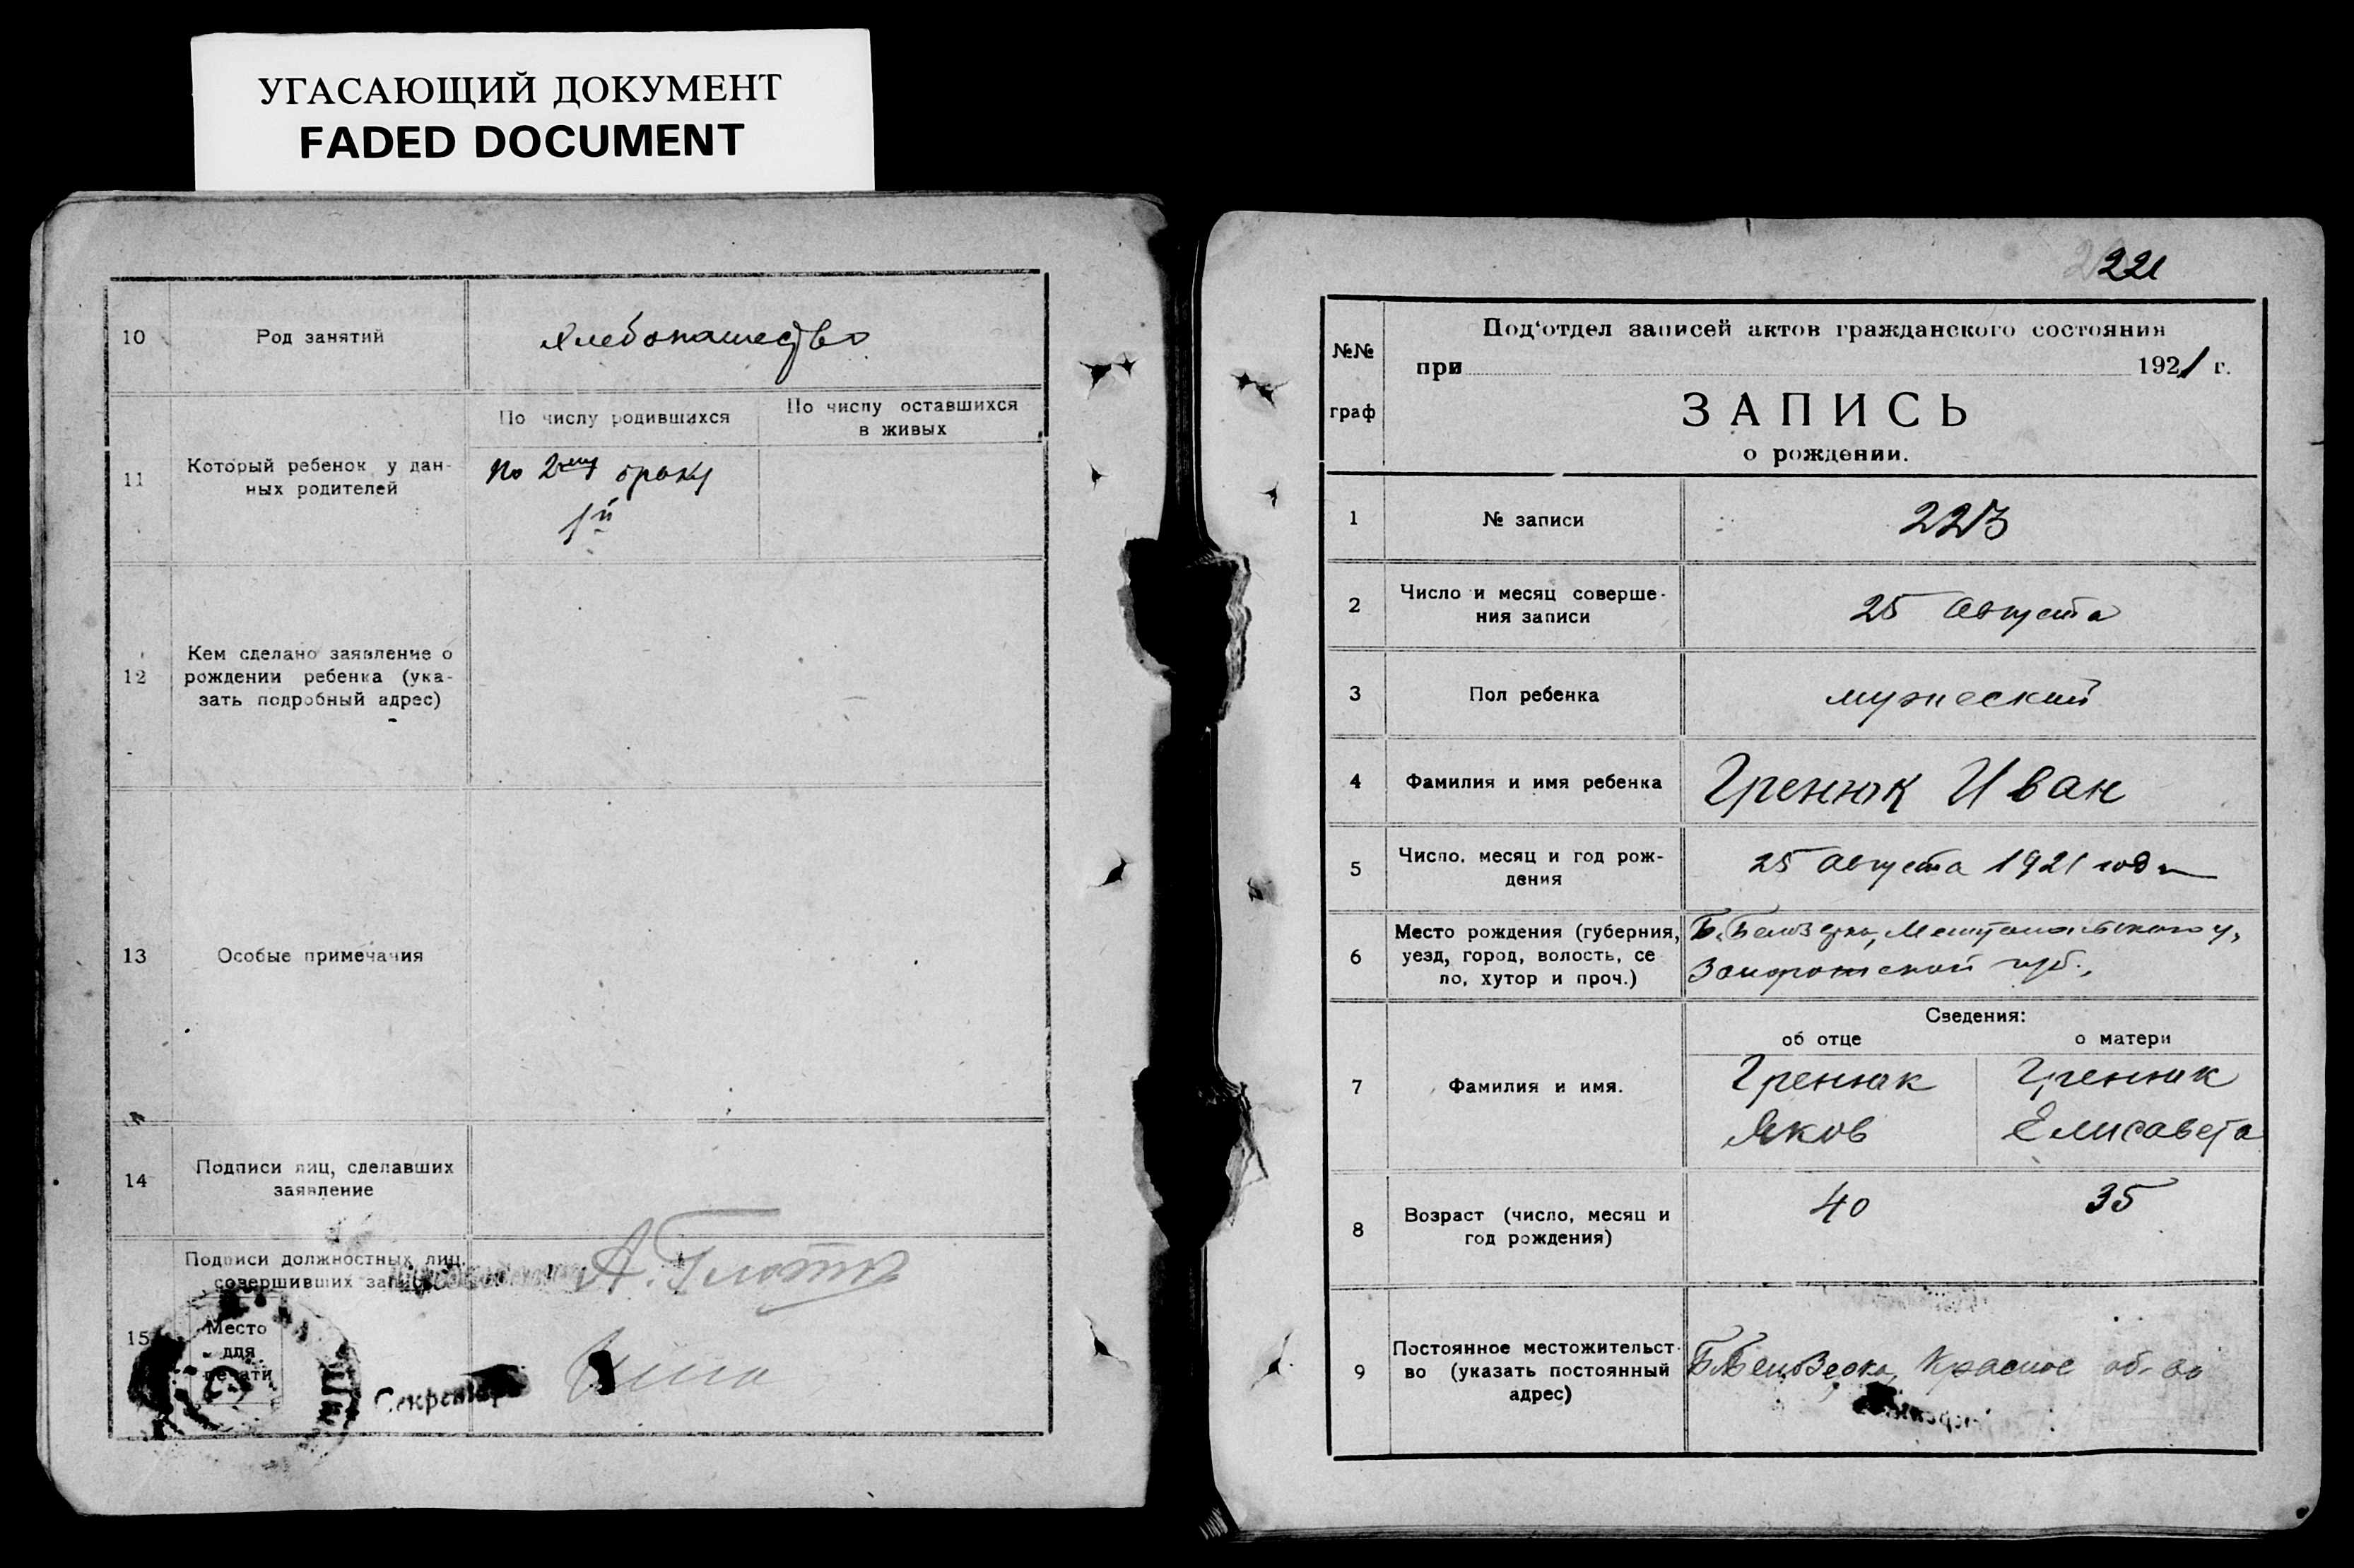 УГАСАЮЩИЙ ДОКУМЕНТ
FADED DOCUMENT
10
Род занятий
Хлебопашество
11
Который ребенок у дан-
ных родителей
По числу родившихся
По числу оставшихся
в живых
По 2му браку
1й
12
Кем сделано заявление о
рождении ребенка (ука-
зать подробный адрес)
13
Особые примечания
14
Подписи лиц, сделавших
заявление
15
Подписи должностных лиц,
совершивших запись
Место
для
печати
А.
Секретарь
221
№№
граф
Под'отдел записей актов гражданского состояния
при 1921 г.
ЗАПИСЬ
о рождении.
1
№ записи
223
2
Число и месяц соверше-
ния записи
25 августа
3
Пол ребенка
мужеский
4
Фамилия и имя ребенка
Гренюк Иван
5
Число, месяц и год рож-
дения
25 августа 1921 года
6
Место рождения (губерния,
уезд, город, волость, се
ло, хутор и проч.)
Б. Белозерка, Мелитопольского у,
Запорожской губ.,
Сведения:
об отце
о матери
7
Фамилия и имя.
Гренюк
Яков
Гренюк
Елисавета
8
Возраст (число, месяц и
год рождения)
40
35
9
Постоянное местожительст-
во (указать постоянный
адрес)
Б. Белозерка, Красное об-во